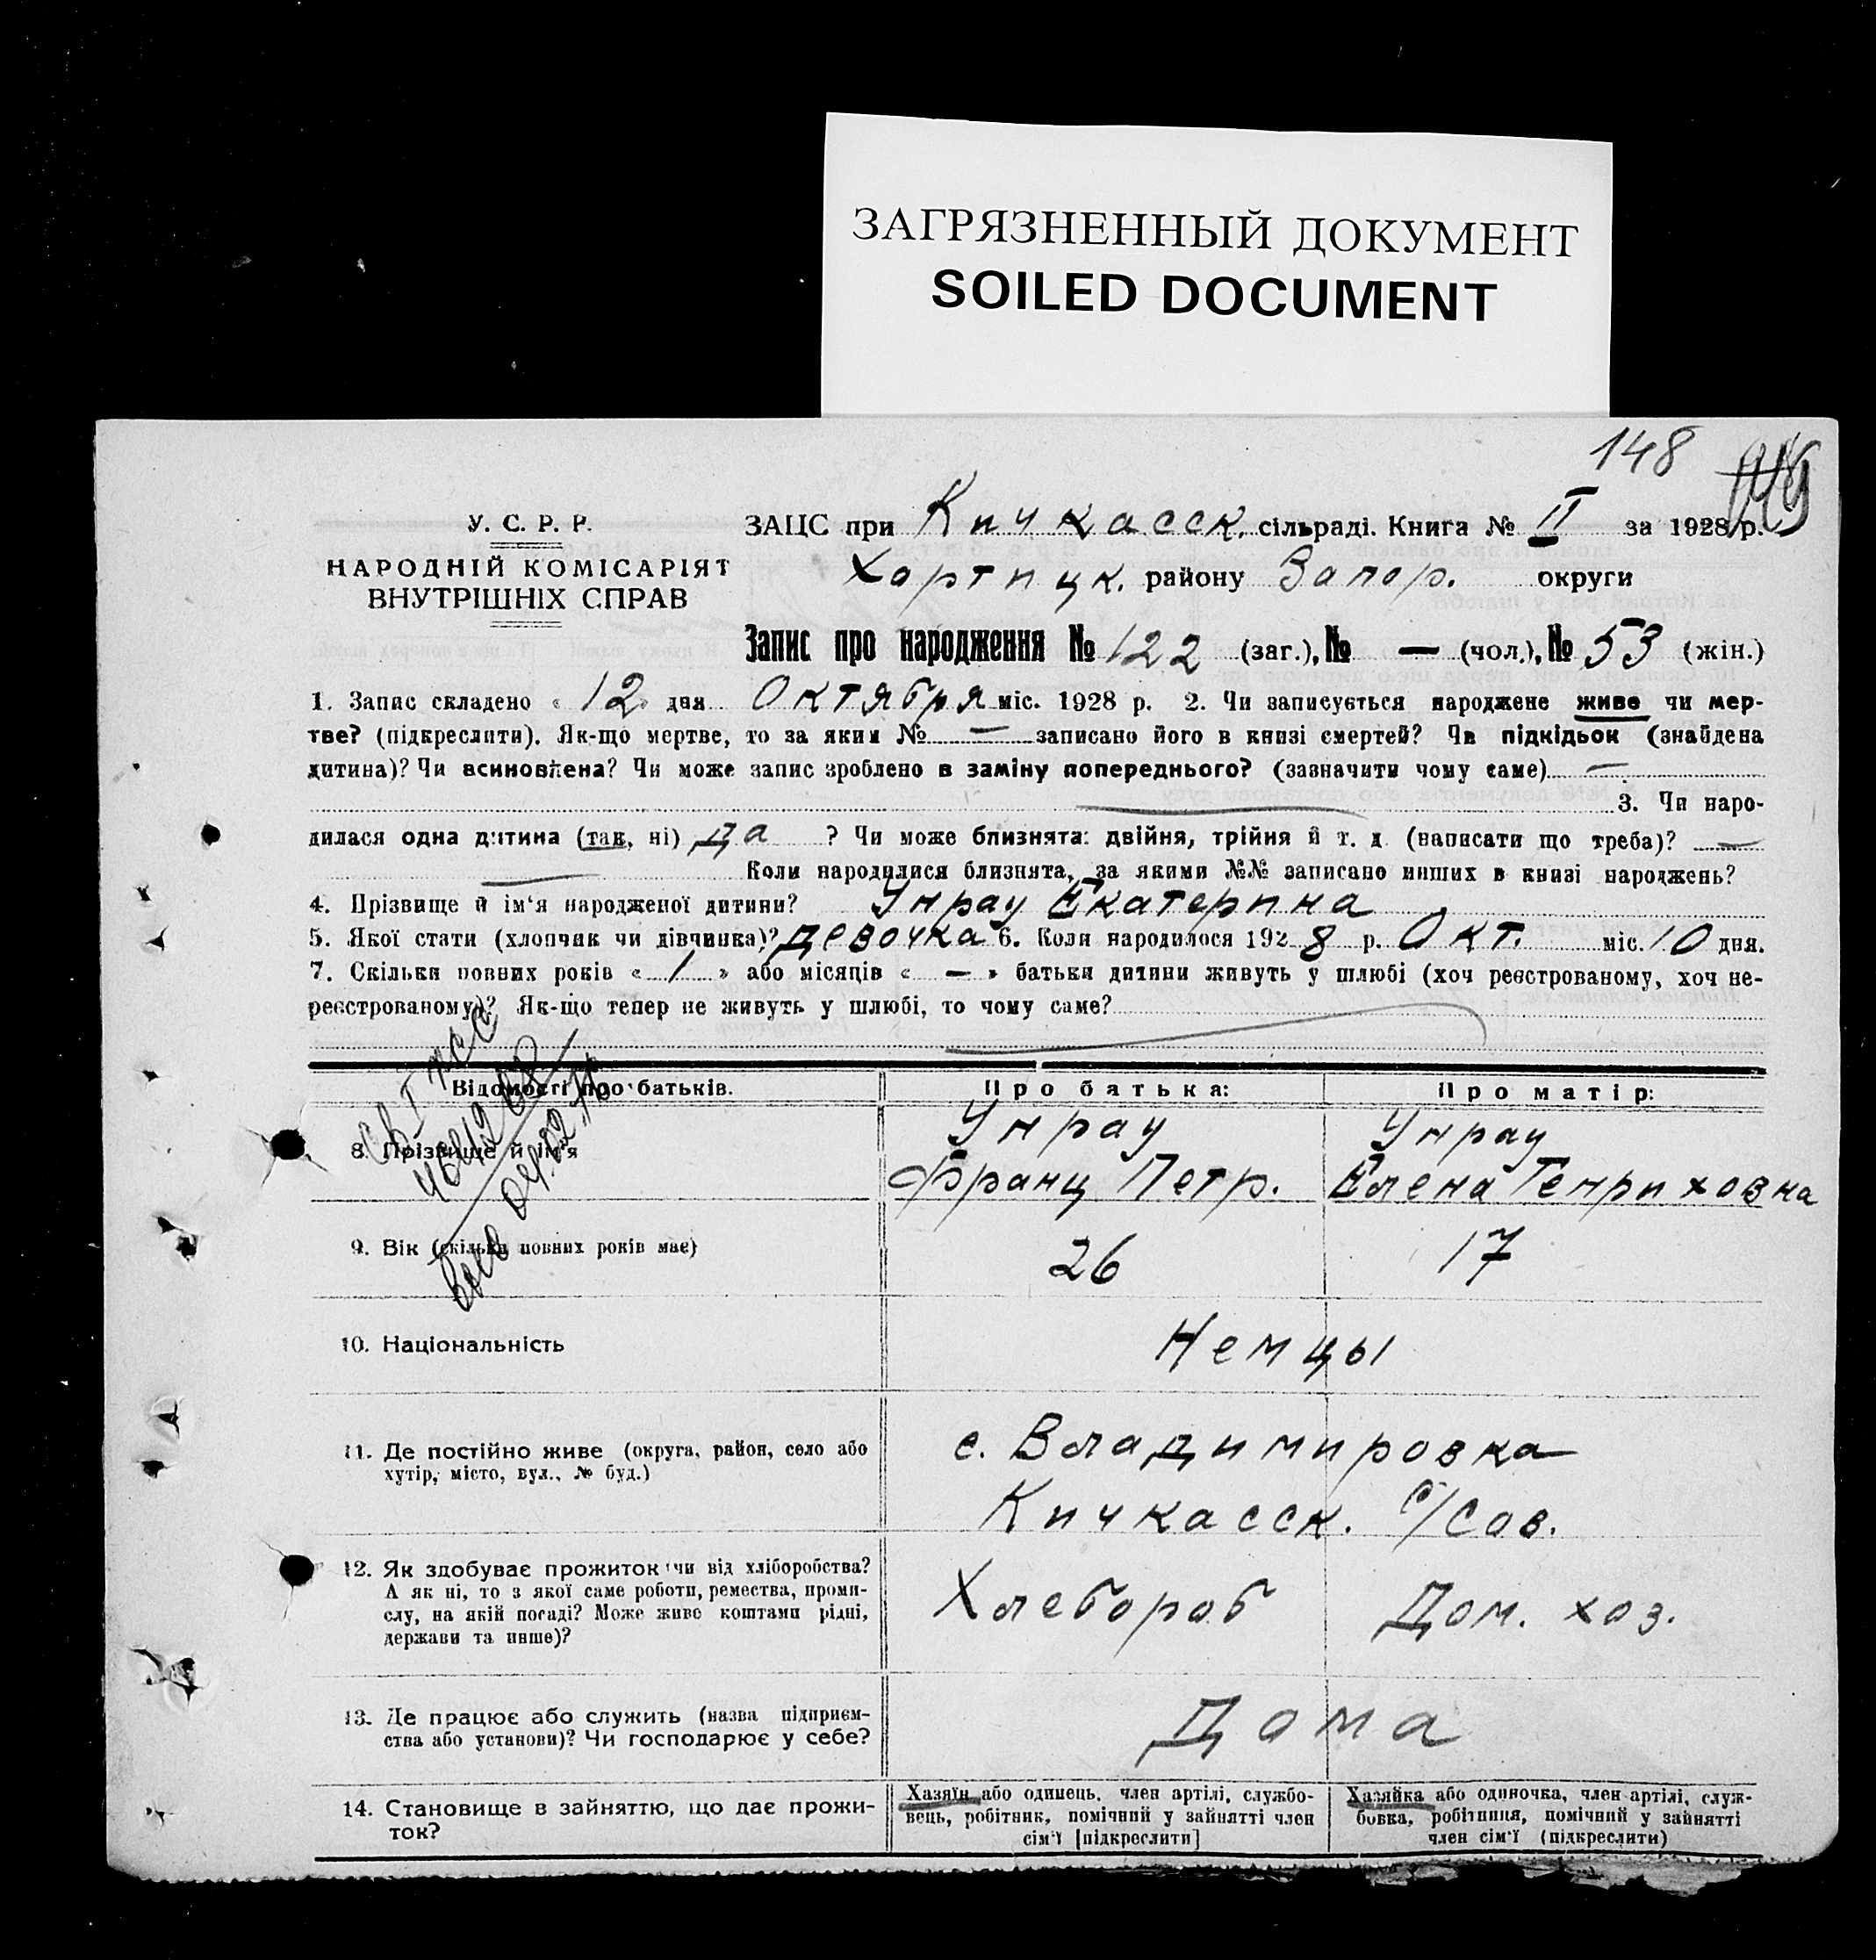 ЗАГРЯЗНЕННЫЙ ДОКУМЕНТ
SOILED DOCUMENT
148
У. С. Р. Р.
НАРОДНІЙ КОМІСАРІЯТ
ВНУТРІШНІХ СПРАВ
ЗАЦС при Кичкасск. сільраді. Книга № II за 1928 р.
Хортицк. району Запор. округи
Запис про народження № 122 (заг.), № — (чол.), № 53 (жін.)
1. Запис складено « 12 » дня Октября міс. 1928 р. 2. Чи записується народжене живе чи мер-
тве? (підкреслити). Як-що мертве, то за яким № — записано його в книзі смертей? Чи підкідьок (знайдена
дитина)? Чи всиновлена? Чи може запис зроблено в заміну попереднього? (зазначити чому саме) —
3. Чи наро-
дилася одна дитина (так, ні) да ? Чи може близнята: двійня, трійня й т. д. (написати що треба)? —
Коли народилися близнята, за якими №№ записано инших в книзі народжень?
4. Прізвище й ім'я народженої дитини? Унрау Екатерина
5. Якої стати (хлопчик чи дівчинка)? Девочка 6. Коли народилося 1928 р. Окт. міс. 10 дня.
7. Скільки повних років « 1 » або місяців « — » батьки дитини живуть у шлюбі (хоч реєстрованому, хоч не-
реєстрованому)? Як-що тепер не живуть у шлюбі, то чому саме?
Відомості про батьків. Про батька: Про матір:
8. Прізвище й ім'я Унрау Франц Петр. Унрау Елена Генриховна
9. Вік (скільки повних років має) 26 17
10. Національність Немцы
11. Де постійно живе (округа, район, село або
хутір, місто, вул., № буд.)
с. Владимировка
Кичкасск. с/сов.
12. Як здобуває прожиток (чи від хліборобства?
А як ні, то з якої саме роботи, ремества, проми-
слу, на якій посаді? Може живе коштами рідні,
держави та инше)?
Хлебороб Дом. хоз.
13. Де працює або служить (назва підприєм-
ства або установи)? Чи господарює у себе?
Дома
14. Становище в зайняттю, що дає прожи-
ток?
Хазяїн або одинець, член артілі, службо-
вець, робітник, помічний у зайнятті член
сім'ї [підкреслити]
Хазяйка або одиночка, член артілі, служ-
бовка, робітниця, помічний у зайнятті
член сім'ї (підкреслити)